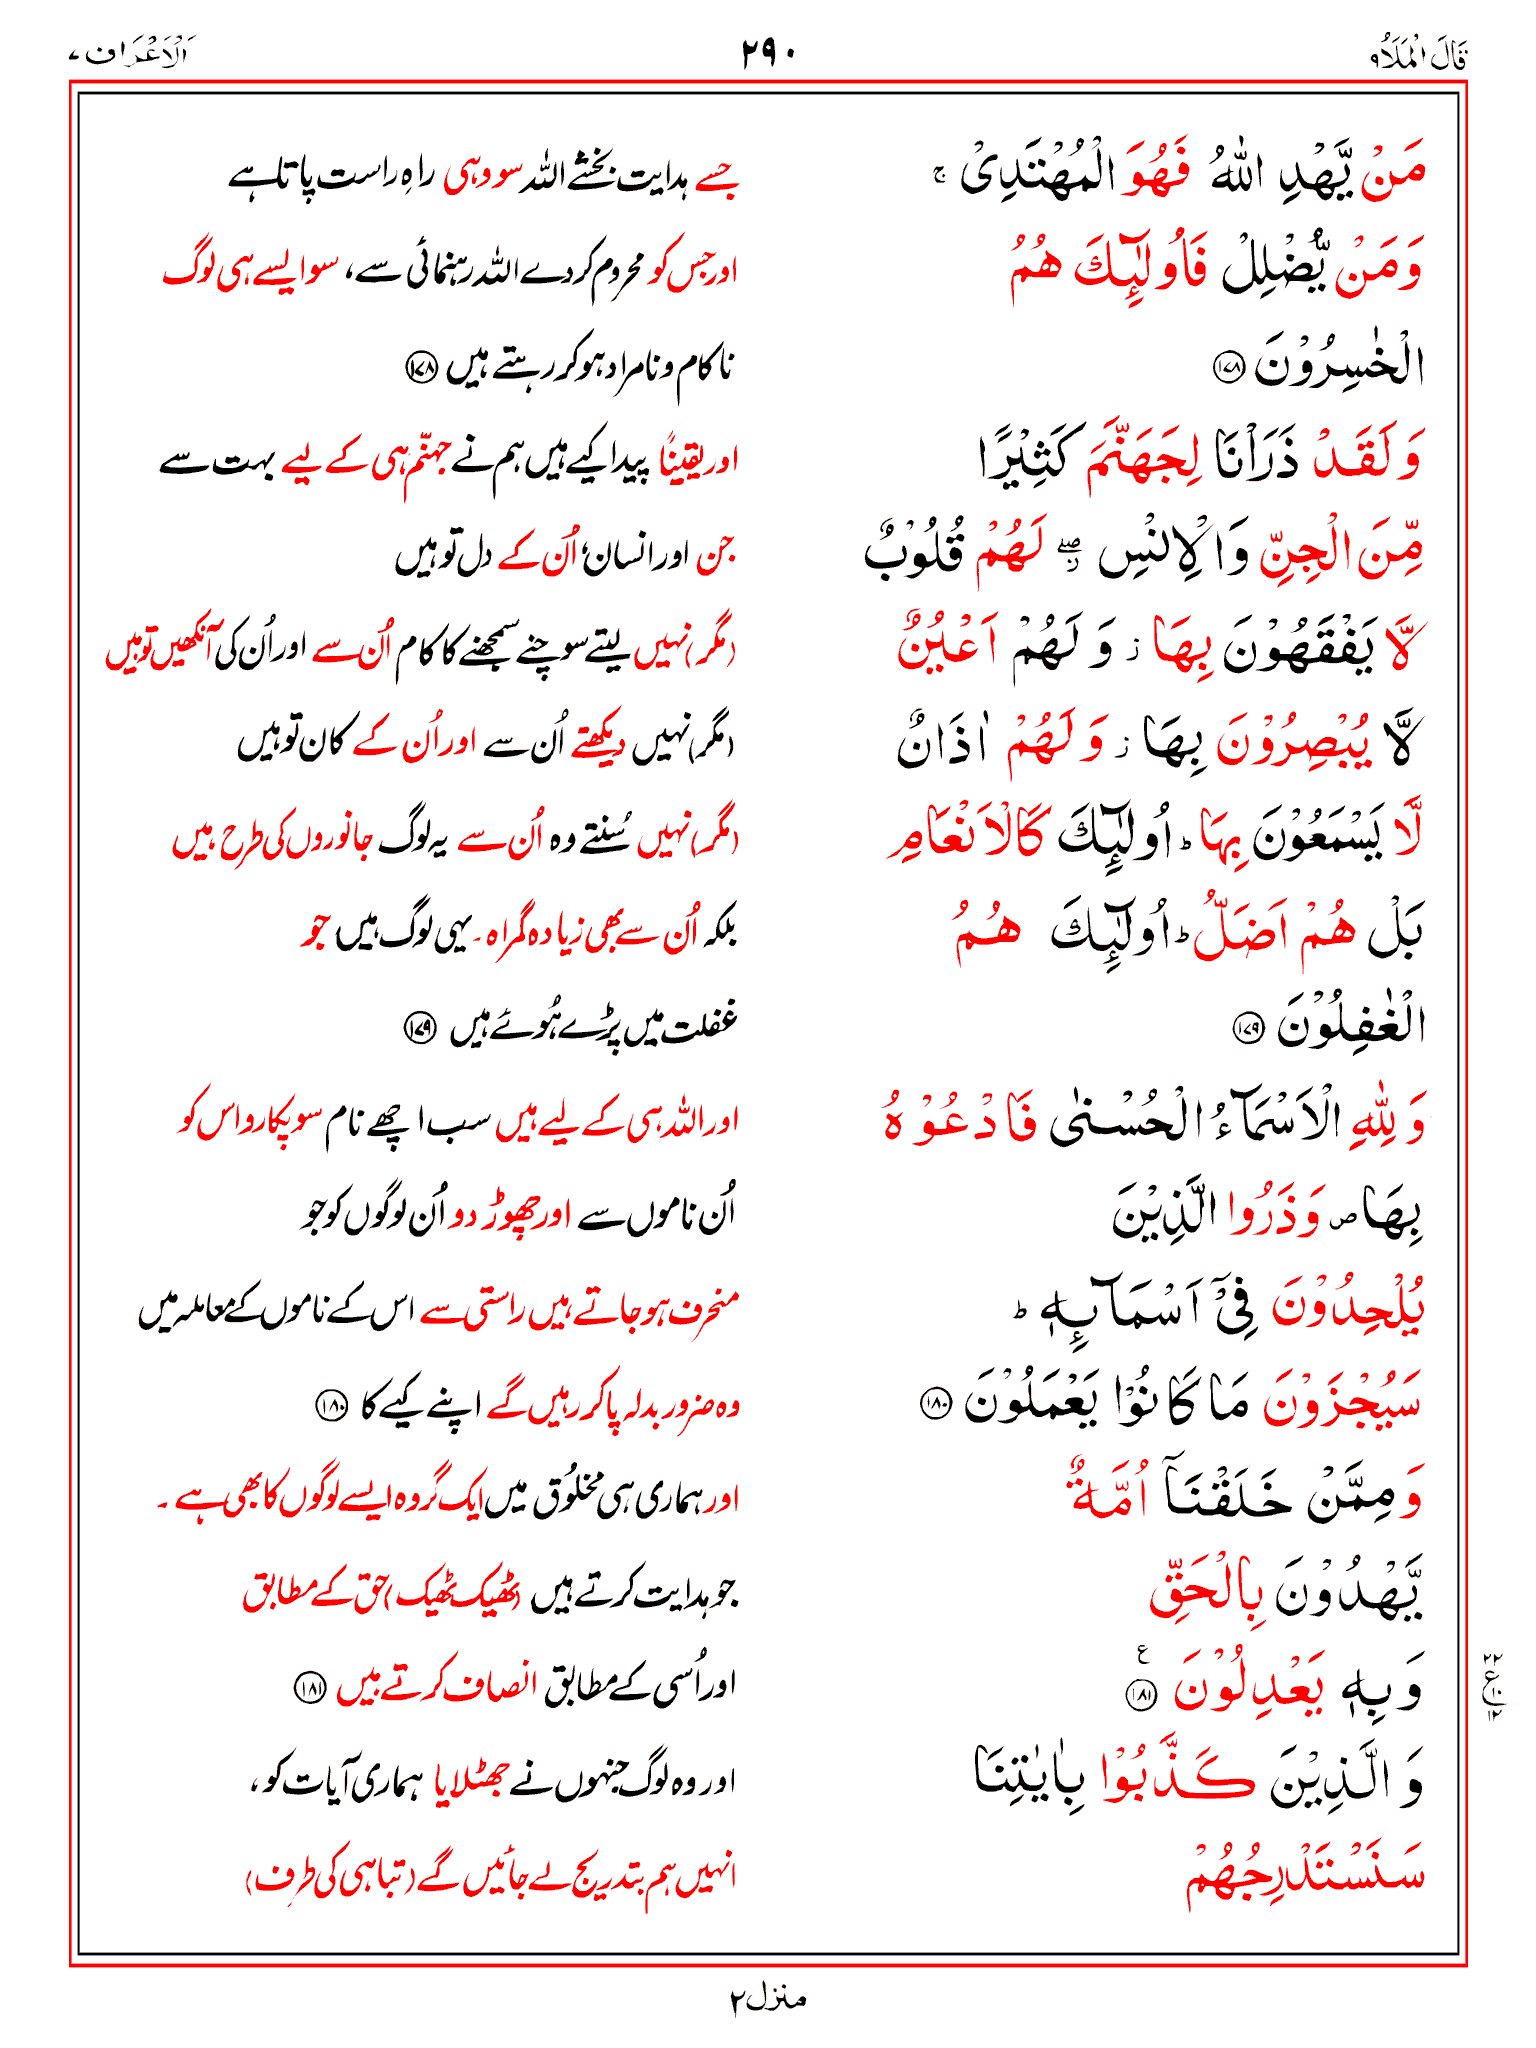 قَالَ الْمَلَاُ ٩
٢٩٠
اَلْاَعْرَاف ٧
مَنْ يَّهْدِ اللّٰهُ فَهُوَ الْمُهْتَدِیْ ۚ
جسے ہدایت بخشے اللہ سو وہی راہِ راست پاتا ہے
وَمَنْ يُّضْلِلْ فَاُولٰٓئِكَ هُمُ
اور جس کو محروم کردے اللہ رہنمائی سے، سو ایسے ہی لوگ
الْخٰسِرُوْنَ ﴿١٧٨﴾
ناکام و نامراد ہوکر رہتے ہیں ﴿١٧٨﴾
وَلَقَدْ ذَرَاْنَا لِجَهَنَّمَ كَثِيْرًا
اور یقیناً پیدا کیے ہیں ہم نے جہنّم ہی کے لیے بہت سے
مِّنَ الْجِنِّ وَالْاِنْسِ ۖ لَهُمْ قُلُوْبٌ
جن اور انسان، اُن کے دل تو ہیں
لَّا يَفْقَهُوْنَ بِهَا ز وَلَهُمْ اَعْيُنٌ
(مگر) نہیں لیتے سوچنے سمجھنے کا کام اُن سے اور اُن کی آنکھیں تو ہیں
لَّا يُبْصِرُوْنَ بِهَا ز وَلَهُمْ اٰذَانٌ
(مگر) نہیں دیکھتے اُن سے اور اُن کے کان تو ہیں
لَّا يَسْمَعُوْنَ بِهَا ط اُولٰٓئِكَ كَالْاَنْعَامِ
(مگر) نہیں سُنتے وہ اُن سے یہ لوگ جانوروں کی طرح ہیں
بَلْ هُمْ اَضَلُّ ط اُولٰٓئِكَ هُمُ
بلکہ اُن سے بھی زیادہ گمراہ۔ یہی لوگ ہیں جو
الْغٰفِلُوْنَ ﴿١٧٩﴾
غفلت میں پڑے ہُوئے ہیں ﴿١٧٩﴾
وَلِلّٰهِ الْاَسْمَآءُ الْحُسْنٰى فَادْعُوْهُ
اور اللہ ہی کے لیے ہیں سب اچھے نام سو پکارو اس کو
بِهَا ص وَذَرُوا الَّذِيْنَ
اُن ناموں سے اور چھوڑ دو اُن لوگوں کو جو
يُلْحِدُوْنَ فِیْۤ اَسْمَآئِهٖ ط
منحرف ہوجاتے ہیں راستی سے اس کے ناموں کے معاملہ میں
سَيُجْزَوْنَ مَا كَانُوْا يَعْمَلُوْنَ ﴿١٨٠﴾
وہ ضرور بدلہ پاکر رہیں گے اپنے کیے کا ﴿١٨٠﴾
وَمِمَّنْ خَلَقْنَاۤ اُمَّةٌ
اور ہماری ہی مخلُوق میں ایک گروہ ایسے لوگوں کا بھی ہے ۔
يَّهْدُوْنَ بِالْحَقِّ
جو ہدایت کرتے ہیں (ٹھیک ٹھیک) حق کے مطابق
وَبِهٖ يَعْدِلُوْنَ ﴿١٨١﴾ ع
اور اُسی کے مطابق انصاف کرتے ہیں ﴿١٨١﴾
٢٢
ع ١٠
١٢
وَالَّذِيْنَ كَذَّبُوْا بِاٰيٰتِنَا
اور وہ لوگ جنہوں نے جھٹلایا ہماری آیات کو،
سَنَسْتَدْرِجُهُمْ
انہیں ہم بتدریج لے جائیں گے (تباہی کی طرف)
منزل ٢